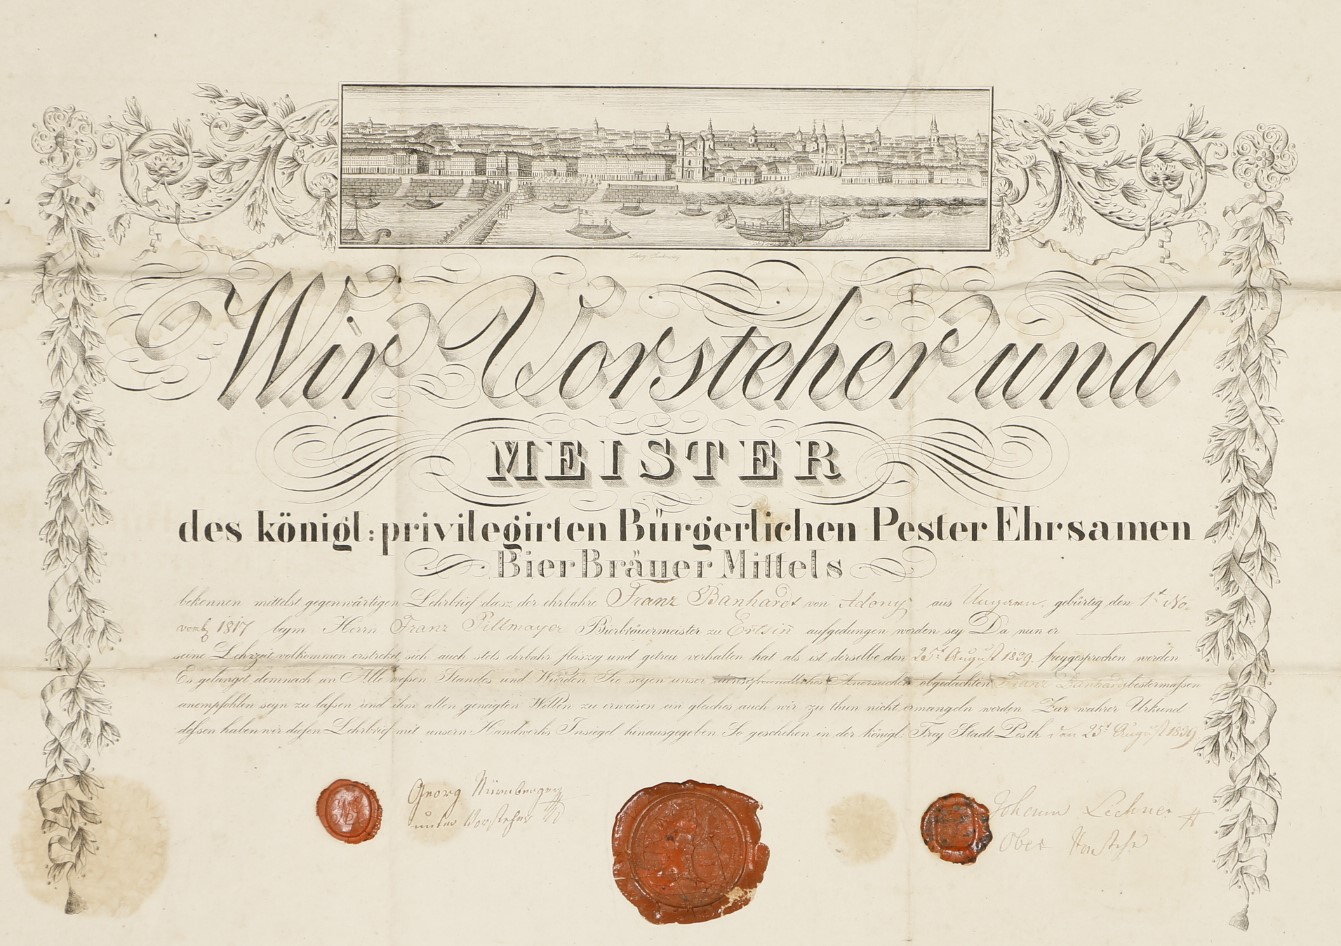 Wir Vorsteher und
MEISTER
des königl: privilegirten Bürgerlichen Pester Ehrsamen
Bier Bräuer Mittels
bekennen mittelst gegenwärtigen Lehrbrief dasz der ehrbahre Franz Banhardt von Adony aus Ungarn, gebürtig den 1t No,
vemb 1817 beym Herrn Franz Pillmayer Bierbräuermeister zu Ertsin aufgedungen worden sey Da nun er
seine Lehrzeit volkommen erstrekt sich auch stets ehrbahr fluszig und getreu verhalten hat als ist derselbe den 25t August 1839 freygesprochen worden
Es gelanget demnach an Alle wessen Standes und Würden Sie seyen unser dienstfreundliches Ansuchen obgedachten Franz Banhardt bestermaßen
anempfohlen seyn zu laßen und ihm allen geneigten Willen zu erweisen ein gleiches auch wir zu thun nicht ermangeln werden Zur wahrer Urkund
deßen haben wir diesen Lehrbrief mit unsern Handwerks Insiegel hinausgegeben So geschehen in der königl. Frey Stadt Pesth den 25t August 1839
Georg Nürnberger
unter Vorsteher
Johann Lechner
Ober Vorsteher